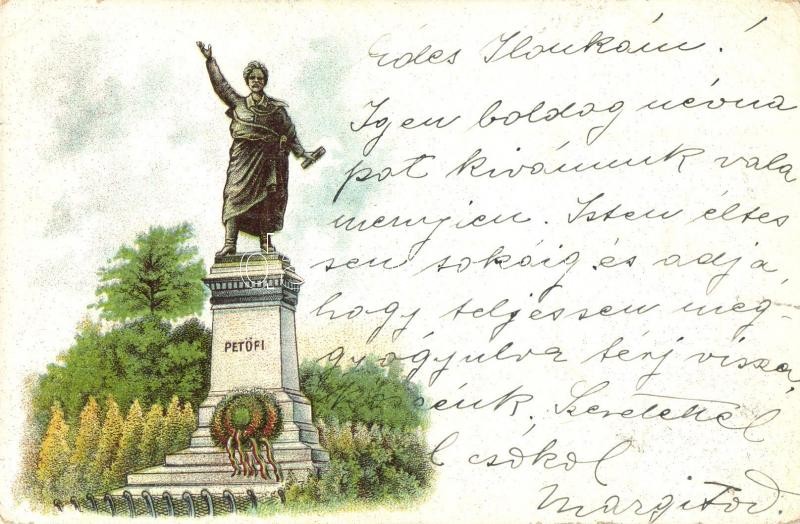 Édes Ilonkám!
Igen boldog névna
pot kivánunk vala
mennyien. Isten éltes
sen sokáig és adja,
hogy teljessen meg-
gyógyulva térj vissza
PETŐFI
Szeretettel
csókol
Margitod.